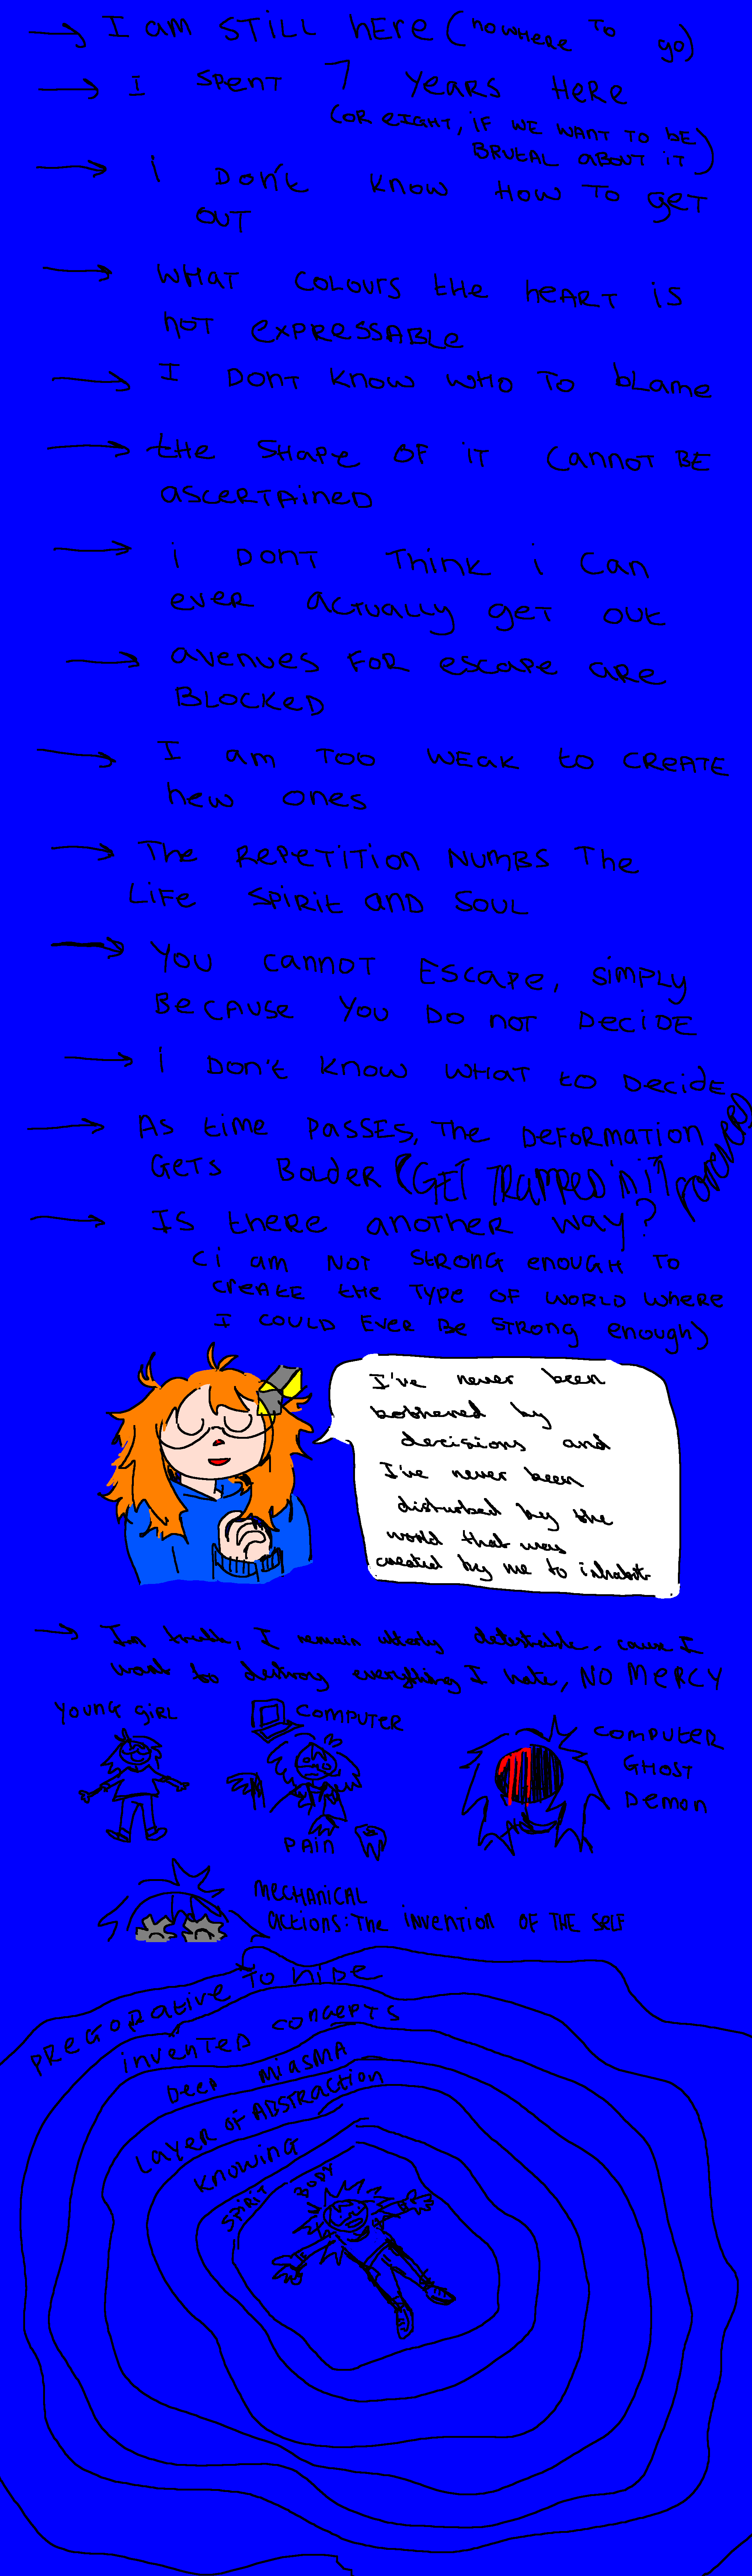 I am STILL hERE (noWHERE TO go)
I SPENT 7 YEARS HERE
(OR EIGHT, IF WE WANT TO BE
BRUTAL ABOUT IT)
i DON't KNOW HOW TO geT
OUT
WHAT COLOURS tHE hEART iS
NOT EXPRESSABLE
I DONT KNOW WHO TO bLAME
tHE SHAPE OF iT CANNOT BE
ASCERTAINED
i DONT THINK i CAN
EVER ACTUALLY geT OUt
AVENUES FOR ESCAPE ARE
BLOCKED
I am TOO WEAK to CREATE
NEW ONES
THE REPETITION NUMBS THE
LIFE SPIRIt AND SOUL
YOU CANNOT ESCAPE, SIMPLY
BECAUSE YOU DO NOT DECIDE
i DON't KNOW WHAT to DECIDE
AS time PASSES, THE DEFORMATION
GETS BOLDER (GET TRAPPED IN IT FOREVER)
IS tHERE anotHER way?
(i am NOT STRONG enouGH TO
CREATE tHE TYPE OF WORLD WHERE
I COULD EVER BE STRONG enough)
I've never been
bothered by
decisions and
I've never been
disturbed by the
world that was
created by me to inhabit
In truth, I remain utterly detestable, cause I
want to destroy everything I hate, NO MERCY
YOUNG GIRL
COMPUTER
PAIN
COMPUTER
GHOST
DEMON
MECHANICAL
ACTIONS: THE INVENTION OF THE SELF
PREGORATIVE TO HIDE
INVENTED CONCEPTS
DEEP MIASMA
LAYER OF ABSTRACTION
KNOWING
SPIRIT
BODY